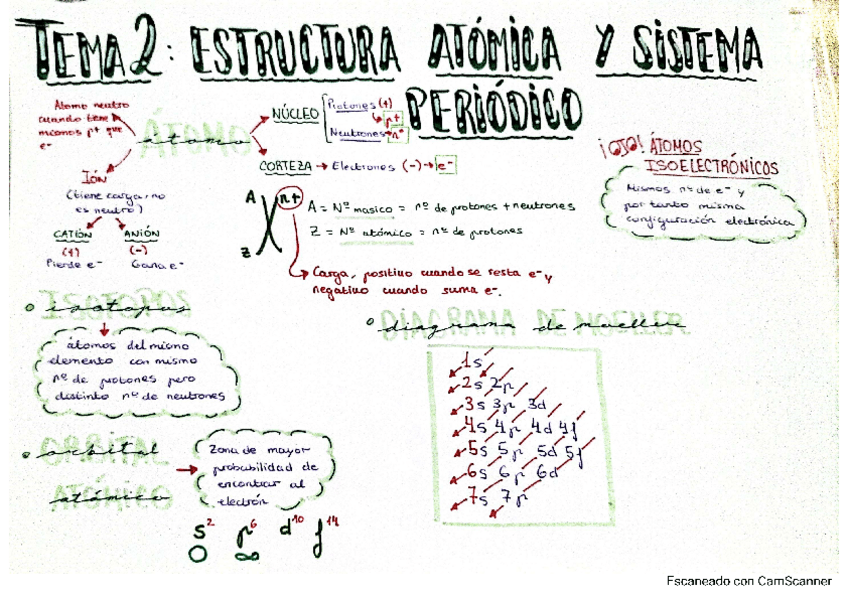 TEMA 2: ESTRUCTURA ATÓMICA Y SISTEMA
PERIÓDICO
Átomo neutro
cuando tiene
mismos p+ que
e-
ÁTOMO
átomo
NÚCLEO
Protones (+)
p+
Neutrones
n°
CORTEZA → Electrones (-) → e-
¡OJO! ÁTOMOS
ISOELECTRÓNICOS
Mismos nº de e- y
por tanto misma
configuración electrónica
IÓN
(tiene carga, no
es neutro)
CATIÓN
(+)
Pierde e-
ANIÓN
(-)
Gana e-
A
n+
X
Z
A = Nº masico = nº de protones + neutrones
Z = Nº atómico = nº de protones
Carga, positivo cuando se resta e- y
negativo cuando suma e-.
ISOTOPOS
isotopos
átomos del mismo
elemento con mismo
nº de protones pero
distinto nº de neutrones
DIAGRAMA DE MOELLER
diagrama de moeller
1s
2s 2p
3s 3p 3d
4s 4p 4d 4f
5s 5p 5d 5f
6s 6p 6d
7s 7p
ORBITAL
orbital
ATÓMICO
atómico
Zona de mayor
probabilidad de
encontrar al
electrón
s² p⁶ d¹⁰ f¹⁴
Escaneado con CamScanner